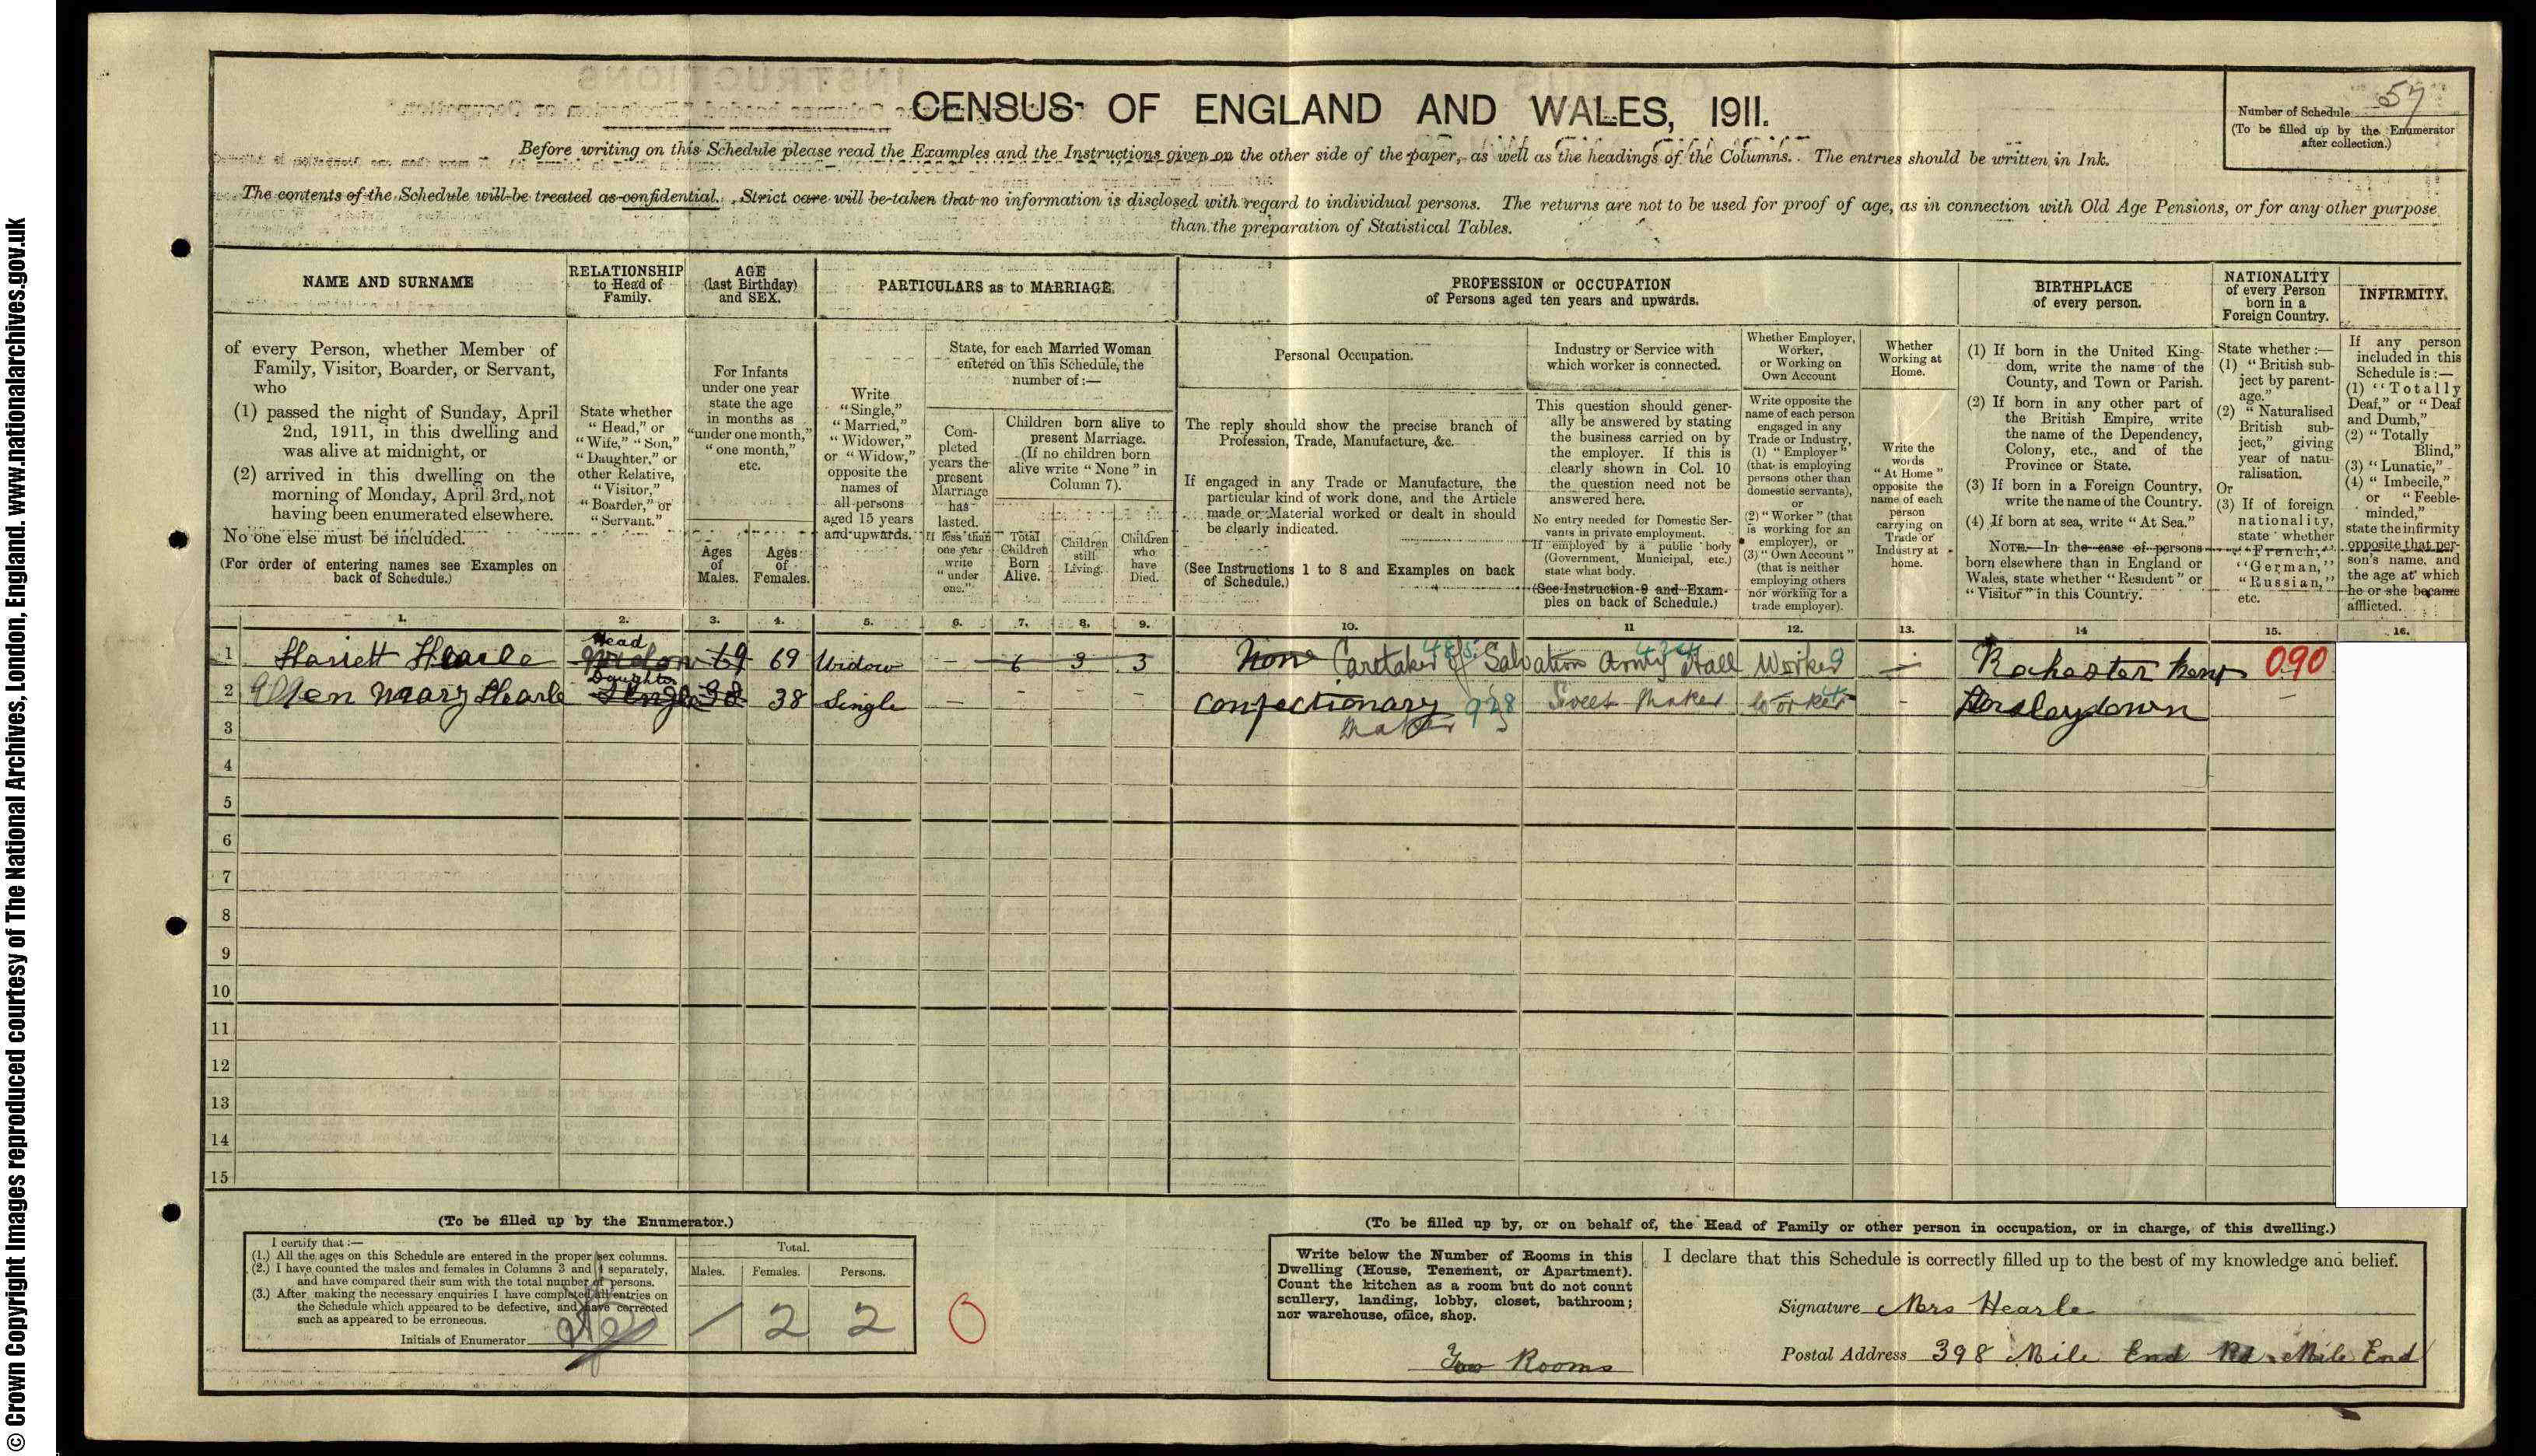 © Crown Copyright Images reproduced courtesy of The National Archives, London, England. www.nationalarchives.gov.uk
CENSUS OF ENGLAND AND WALES, 1911.
Number of Schedule 57
(To be filled up by the Enumerator
after collection.)
Before writing on this Schedule please read the Examples and the Instructions given on the other side of the paper, as well as the headings of the Columns. The entries should be written in Ink.
The contents of the Schedule will be treated as confidential. Strict care will be taken that no information is disclosed with regard to individual persons. The returns are not to be used for proof of age, as in connection with Old Age Pensions, or for any other purpose
than the preparation of Statistical Tables.
NAME AND SURNAME
of every Person, whether Member of
Family, Visitor, Boarder, or Servant,
who
(1) passed the night of Sunday, April
2nd, 1911, in this dwelling and
was alive at midnight, or
(2) arrived in this dwelling on the
morning of Monday, April 3rd, not
having been enumerated elsewhere.
No one else must be included.
(For order of entering names see Examples on
back of Schedule.)
1.
RELATIONSHIP
to Head of
Family.
State whether
"Head," or
"Wife," "Son,"
"Daughter," or
other Relative,
"Visitor,"
"Boarder," or
"Servant."
2.
AGE
(last Birthday)
and SEX.
For Infants
under one year
state the age
in months as
"under one month,"
"one month,"
etc.
Ages
of
Males.
3.
Ages
of
Females.
4.
PARTICULARS as to MARRIAGE.
Write
"Single,"
"Married,"
"Widower,"
or "Widow,"
opposite the
names of
all persons
aged 15 years
and upwards.
5.
State, for each Married Woman
entered on this Schedule, the
number of:—
Com-
pleted
years the
present
Marriage
has
lasted.
If less than
one year
write
"under
one."
6.
Children born alive to
present Marriage.
(If no children born
alive write "None" in
Column 7).
Total
Children
Born
Alive.
7.
Children
still
Living.
8.
Children
who
have
Died.
9.
PROFESSION or OCCUPATION
of Persons aged ten years and upwards.
Personal Occupation.
The reply should show the precise branch of
Profession, Trade, Manufacture, &c.
If engaged in any Trade or Manufacture, the
particular kind of work done, and the Article
made or Material worked or dealt in should
be clearly indicated.
(See Instructions 1 to 8 and Examples on back
of Schedule.)
10.
Industry or Service with
which worker is connected.
This question should gener-
ally be answered by stating
the business carried on by
the employer. If this is
clearly shown in Col. 10
the question need not be
answered here.
No entry needed for Domestic Ser-
vants in private employment.
If employed by a public body
(Government, Municipal, etc.)
state what body.
(See Instruction 9 and Exam-
ples on back of Schedule.)
11
Whether Employer,
Worker,
or Working on
Own Account
Write opposite the
name of each person
engaged in any
Trade or Industry,
(1) "Employer"
(that is employing
persons other than
domestic servants),
or
(2) "Worker" (that
is working for an
employer), or
(3) "Own Account"
(that is neither
employing others
nor working for a
trade employer).
12.
Whether
Working at
Home.
Write the
words
"At Home"
opposite the
name of each
person
carrying on
Trade or
Industry at
home.
13.
BIRTHPLACE
of every person.
(1) If born in the United King-
dom, write the name of the
County, and Town or Parish.
(2) If born in any other part of
the British Empire, write
the name of the Dependency,
Colony, etc., and of the
Province or State.
(3) If born in a Foreign Country,
write the name of the Country.
(4) If born at sea, write "At Sea."
NOTE.—In the case of persons
born elsewhere than in England or
Wales, state whether "Resident" or
"Visitor" in this Country.
14
NATIONALITY
of every Person
born in a
Foreign Country.
State whether:—
(1) "British sub-
ject by parent-
age."
(2) "Naturalised
British sub-
ject," giving
year of natu-
ralisation.
Or
(3) If of foreign
nationality,
state whether
"French,"
"German,"
"Russian,"
etc.
15.
INFIRMITY.
If any person
included in this
Schedule is:—
(1) "Totally
Deaf," or "Deaf
and Dumb,"
(2) "Totally
Blind,"
(3) "Lunatic,"
(4) "Imbecile,"
or "Feeble-
minded,"
state the infirmity
opposite that per-
son's name, and
the age at which
he or she became
afflicted.
16.
1 Harriett Hearle Head Widow 69 69 Widow – 6 3 3 None Caretaker of Salvation Army Hall Worker – Rochester Kent 090
2 Ellen Mary Hearle Daughter Single 38 38 Single – – – – Confectionary Maker 928 Sweet Maker Worker – Horsleydown –
3
4
5
6
7
8
9
10
11
12
13
14
15
(To be filled up by the Enumerator.)
I certify that:—
(1.) All the ages on this Schedule are entered in the proper sex columns.
(2.) I have counted the males and females in Columns 3 and 4 separately,
and have compared their sum with the total number of persons.
(3.) After making the necessary enquiries I have completed all entries on
the Schedule which appeared to be defective, and have corrected
such as appeared to be erroneous.
Initials of Enumerator
Total.
Males. Females. Persons.
/ 2 2
0
(To be filled up by, or on behalf of, the Head of Family or other person in occupation, or in charge, of this dwelling.)
Write below the Number of Rooms in this
Dwelling (House, Tenement, or Apartment).
Count the kitchen as a room but do not count
scullery, landing, lobby, closet, bathroom;
nor warehouse, office, shop.
Two Rooms
I declare that this Schedule is correctly filled up to the best of my knowledge and belief.
Signature Mrs Hearle
Postal Address 398 Mile End Rd Mile End